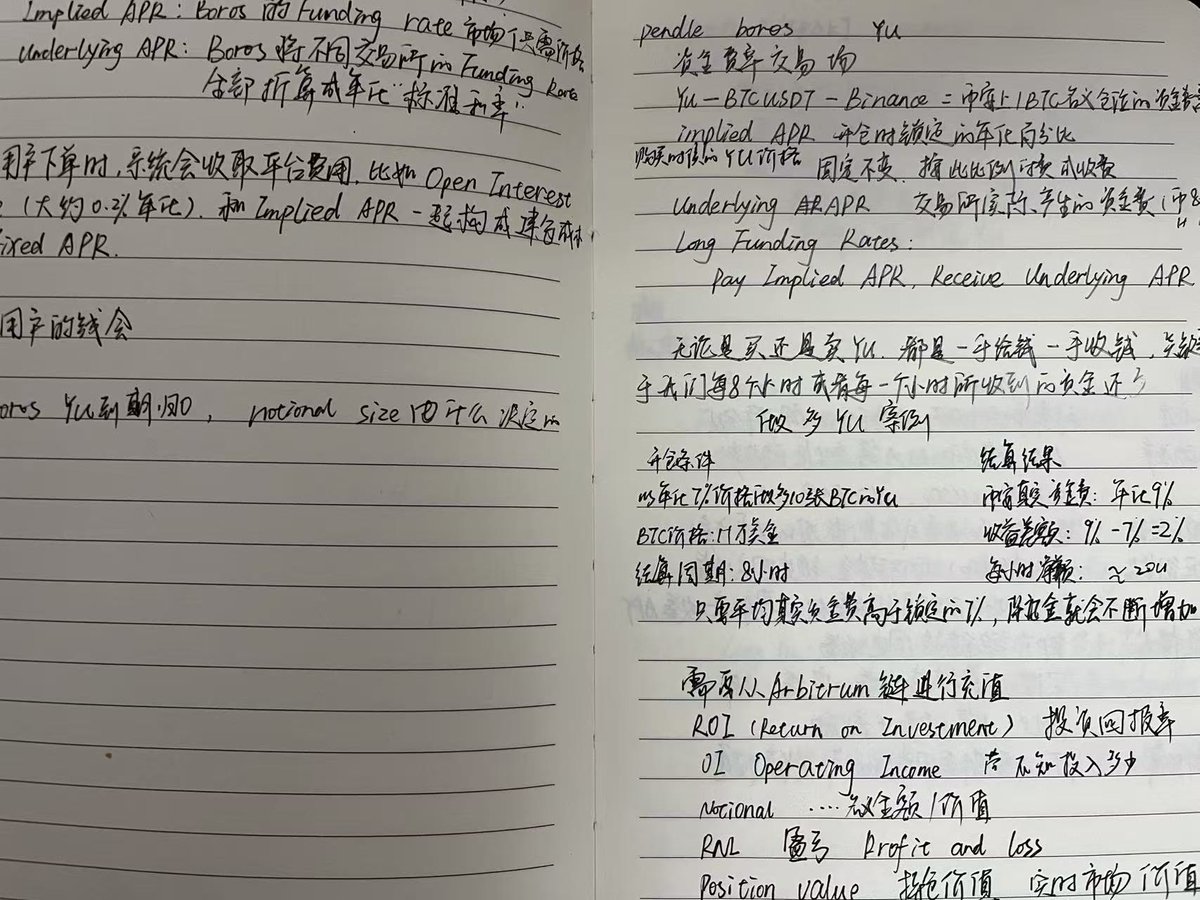 Implied APR: Boros 的 Funding rate 市场供需价格
Underlying APR: Boros 将不同交易所的 Funding Rate
全部折算成年化“标准利率”
用户下单时,系统会收取平台费用,比如 Open Interest
(大约0.2%年化). 和 Implied APR 一起构成建仓成本
ixed APR.
用户的钱会
oros YU到期归0, notional size 由什么决定的
pendle boros YU
资金费率交易场
YU-BTCUSDT-Binance = 币安上1BTC名义仓位的资金费
implied APR 开仓时锁定的年化百分比
购买时候的YU价格 固定不变. 按此比例付费或收费
Underlying APR 交易所实际产生的资金费(币8
Long Funding Rates:
Pay Implied APR, Receive Underlying APR
无论是买还是卖YU. 都是一手给钱一手收钱,
于我们每8个小时或者每一个小时所收到的资金还多
做多YU案例
开仓条件 结算结果
以年化7%价格做多10张BTC的YU 币安真实资金费: 年化9%
BTC价格:11万美金 收益差额: 9%-7%=2%
结算周期:8小时 每小时净额: ≈20u
只要平均真实资金费高于锁定的7%, 保证金就会不断增加
需要从Arbitrum链进行充值
ROI (Return on Investment) 投资回报率
OI Operating Income 营 不知投入多少
Notional ....名义金额/价值
PNL 盈亏 Profit and loss
Position value 持仓价值 实时市场价值